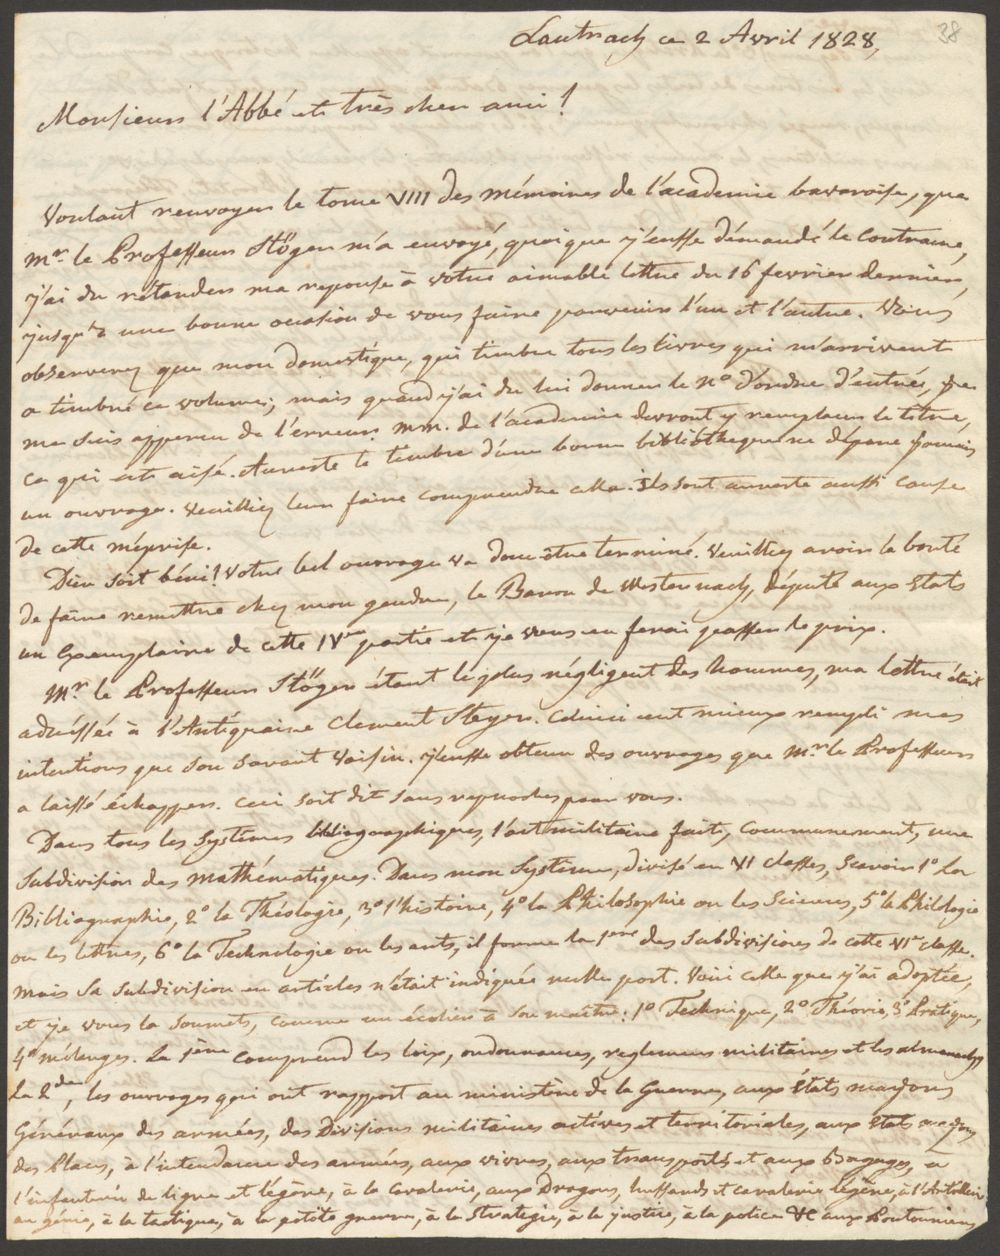 38
Lautrach ce 2 Avril 1828,
Monsieur l'Abbé et très cher ami!
Voulant renvoyer le tome VIII des mémoires de l'academie bavaroise, que
Mr. le Professeur Stöger m'a envoyé, quoique j'eusse démandé le contraire,
j'ai du retarder ma reponse à votre aimable lettre du 16 fevrier dernier,
jusqu'à une bonne occasion de vous faire parvenir l'un et l'autre. Vous
observerez que mon domestique, qui timbre tous les livres qui m'arrivent
a timbré ce volume; mais quand j'ai du lui donner le no d'ordre d'entrée, je
me suis apperçu de l'erreur. mm. de l'academie devront y remplacer le titre,
ce qui est aisé. Aureste le timbre d'une bonne bibliothèque ne dépare jamais
un ouvrage. Veuilliez leur faire comprendre cela. Ils sont aureste aussi cause
de cette méprise.
Dieu soit béni! Votre bel ouvrage va donc être terminé. Veuilliez avoir la bonté
de faire remettre chez mon gendre, le Baron de Westernach, député aux Etats
un Exemplaire de cette IVme partie et je vous en ferai passer le prix.
Mr le Professeur Stöger étant le plus négligent des hommes, ma lettre était
adressée à l'Antiquaire Clement Steyer. Celuici eut mieux rempli mes
intentions que son savant voisin. j'eusse obtenu des ouvrages que Mr le Professeur
a laissé échapper. Ceci soit dit sans reproches pour vous.
Dans tous les systèmes bibliographiques, l'art militaire fait, communement, une
subdivision des mathématiques. Dans mon système, divisé en VI classes, scavoir 1o La
Bibliographie, 2o la Théologie, 3o l'histoire, 4o la Philosophie ou les Sciences, 5o la Philologie
ou les lettres, 6o la Technologie ou les arts, il forme la 1ere des subdivisions de cette VIe classe.
Mais sa subdivision en articles n'était indiquée nulle part. Voici celle que j'ai adoptée,
et je vous la soumets, comme un écolier à son maitre: 1o Technique, 2o Théorie, 3o Pratique,
4o mélanges. La 1ère comprend les loix, ordonnances, reglemens militaires et les almanachs
La 2de, les ouvrages qui ont rapport au ministère de la Guerre, aux états majors
Généraux des armées, des Divisions militaires actives et territoriales, aux etats majors
des Places, à l'intendance des armées, aux vivres, aux transports et aux Bagages, a
l'infanterie de ligne et légère, à la Cavalerie, aux Dragons, hussards et cavalerie légère, à l'Artillerie
au génie, à la tactique, à la petite guerre, à la stratégie, à la justice, à la police &c aux Pontonniers